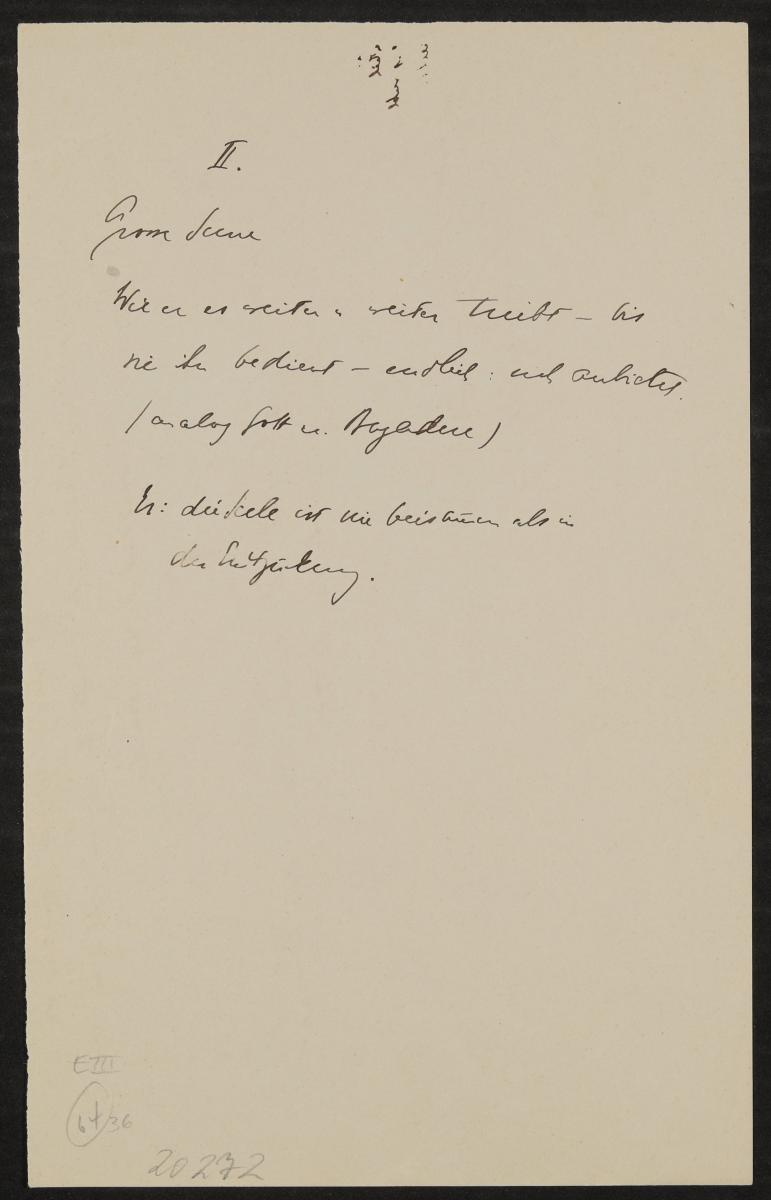 II.
Grosse Scene
Wie er es weiter u weiter treibt – bis
sie ihn bedient – endlich: sich anbietet.
(analog Gott u. Bajadere)
Er: die Seele ist nie beisammen als in
der Entzückung.
E III
64/36
20272